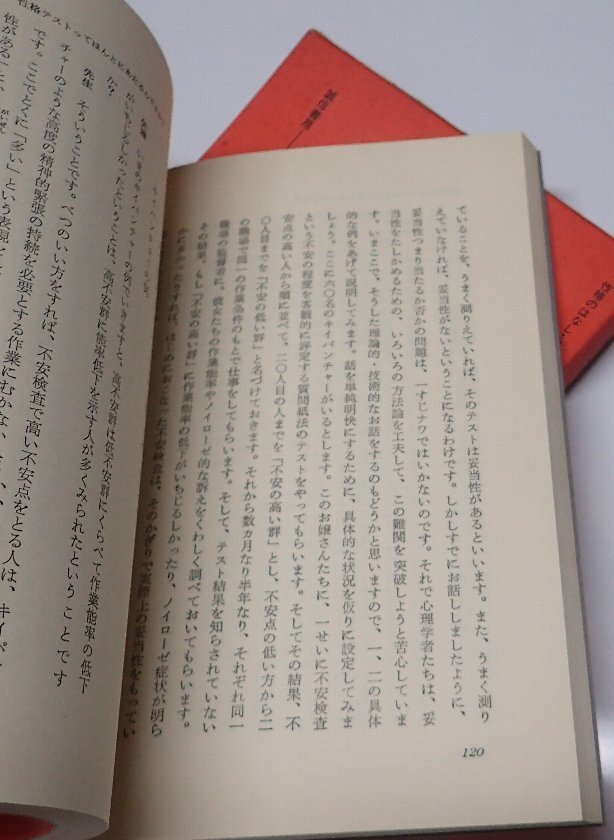 ていることを、うまく測りえていれば、そのテストは妥当性があるといいます。また、うまく測り
えていなければ、妥当性がないということになるわけです。しかしすでにお話ししましたように、
妥当性つまり当たるか否かの問題は、一すじナワではいかないのです。それで心理学者たちは、妥
当性をたしかめるための、いろいろの方法論を工夫して、この難関を突破しようと苦心していま
す。いまここで、そうした理論的・技術的なお話をするのもどうかと思いますので、一、二の具体
的な例をあげて説明してみます。話を単純明快にするために、具体的な状況を仮りに設定してみま
しょう。ここに六〇名のキイパンチャーがいるとします。このお嬢さんたちに、一せいに不安検査
という不安の程度を客観的に評定する質問紙法のテストをやってもらいます。そしてその結果、不
安点の高い人から順に並べて、二〇人目の人までを「不安の高い群」とし、不安点の低い方から二
〇人目までを「不安の低い群」と名づけておきます。それから数か月なり半年なり、それぞれ同一
の職場で同一の作業条件のもとで仕事をしてもらいます。そして、テスト結果を知らされていない
職場の監督者に、彼女たちの作業能率やノイローゼ的な訴えをくわしく調べておいてもらいます。
その結果、もし「不安の高い群」に作業能率の低下がいちじるしかったり、ノイローゼ症状が明ら
かに多かったりすれば、はじめにおこなった不安検査は、そのかぎりで実際上の妥当性をもってい
120
性格テストってほんとにあたるんですか
高不安群は低不安群にくらべて作業能率の低下
とは、高不安群に能率低下を示す人が多くみられたということです
か？
先生 そういうことです。べつのいい方をすれば、不安検査で高い不安点をとる人は、キイパン
チャーのような高度の精神的緊張の持続を必要とする作業にむかない
です。ここでとくに「多い」という表現
性がある」
性格のはなし